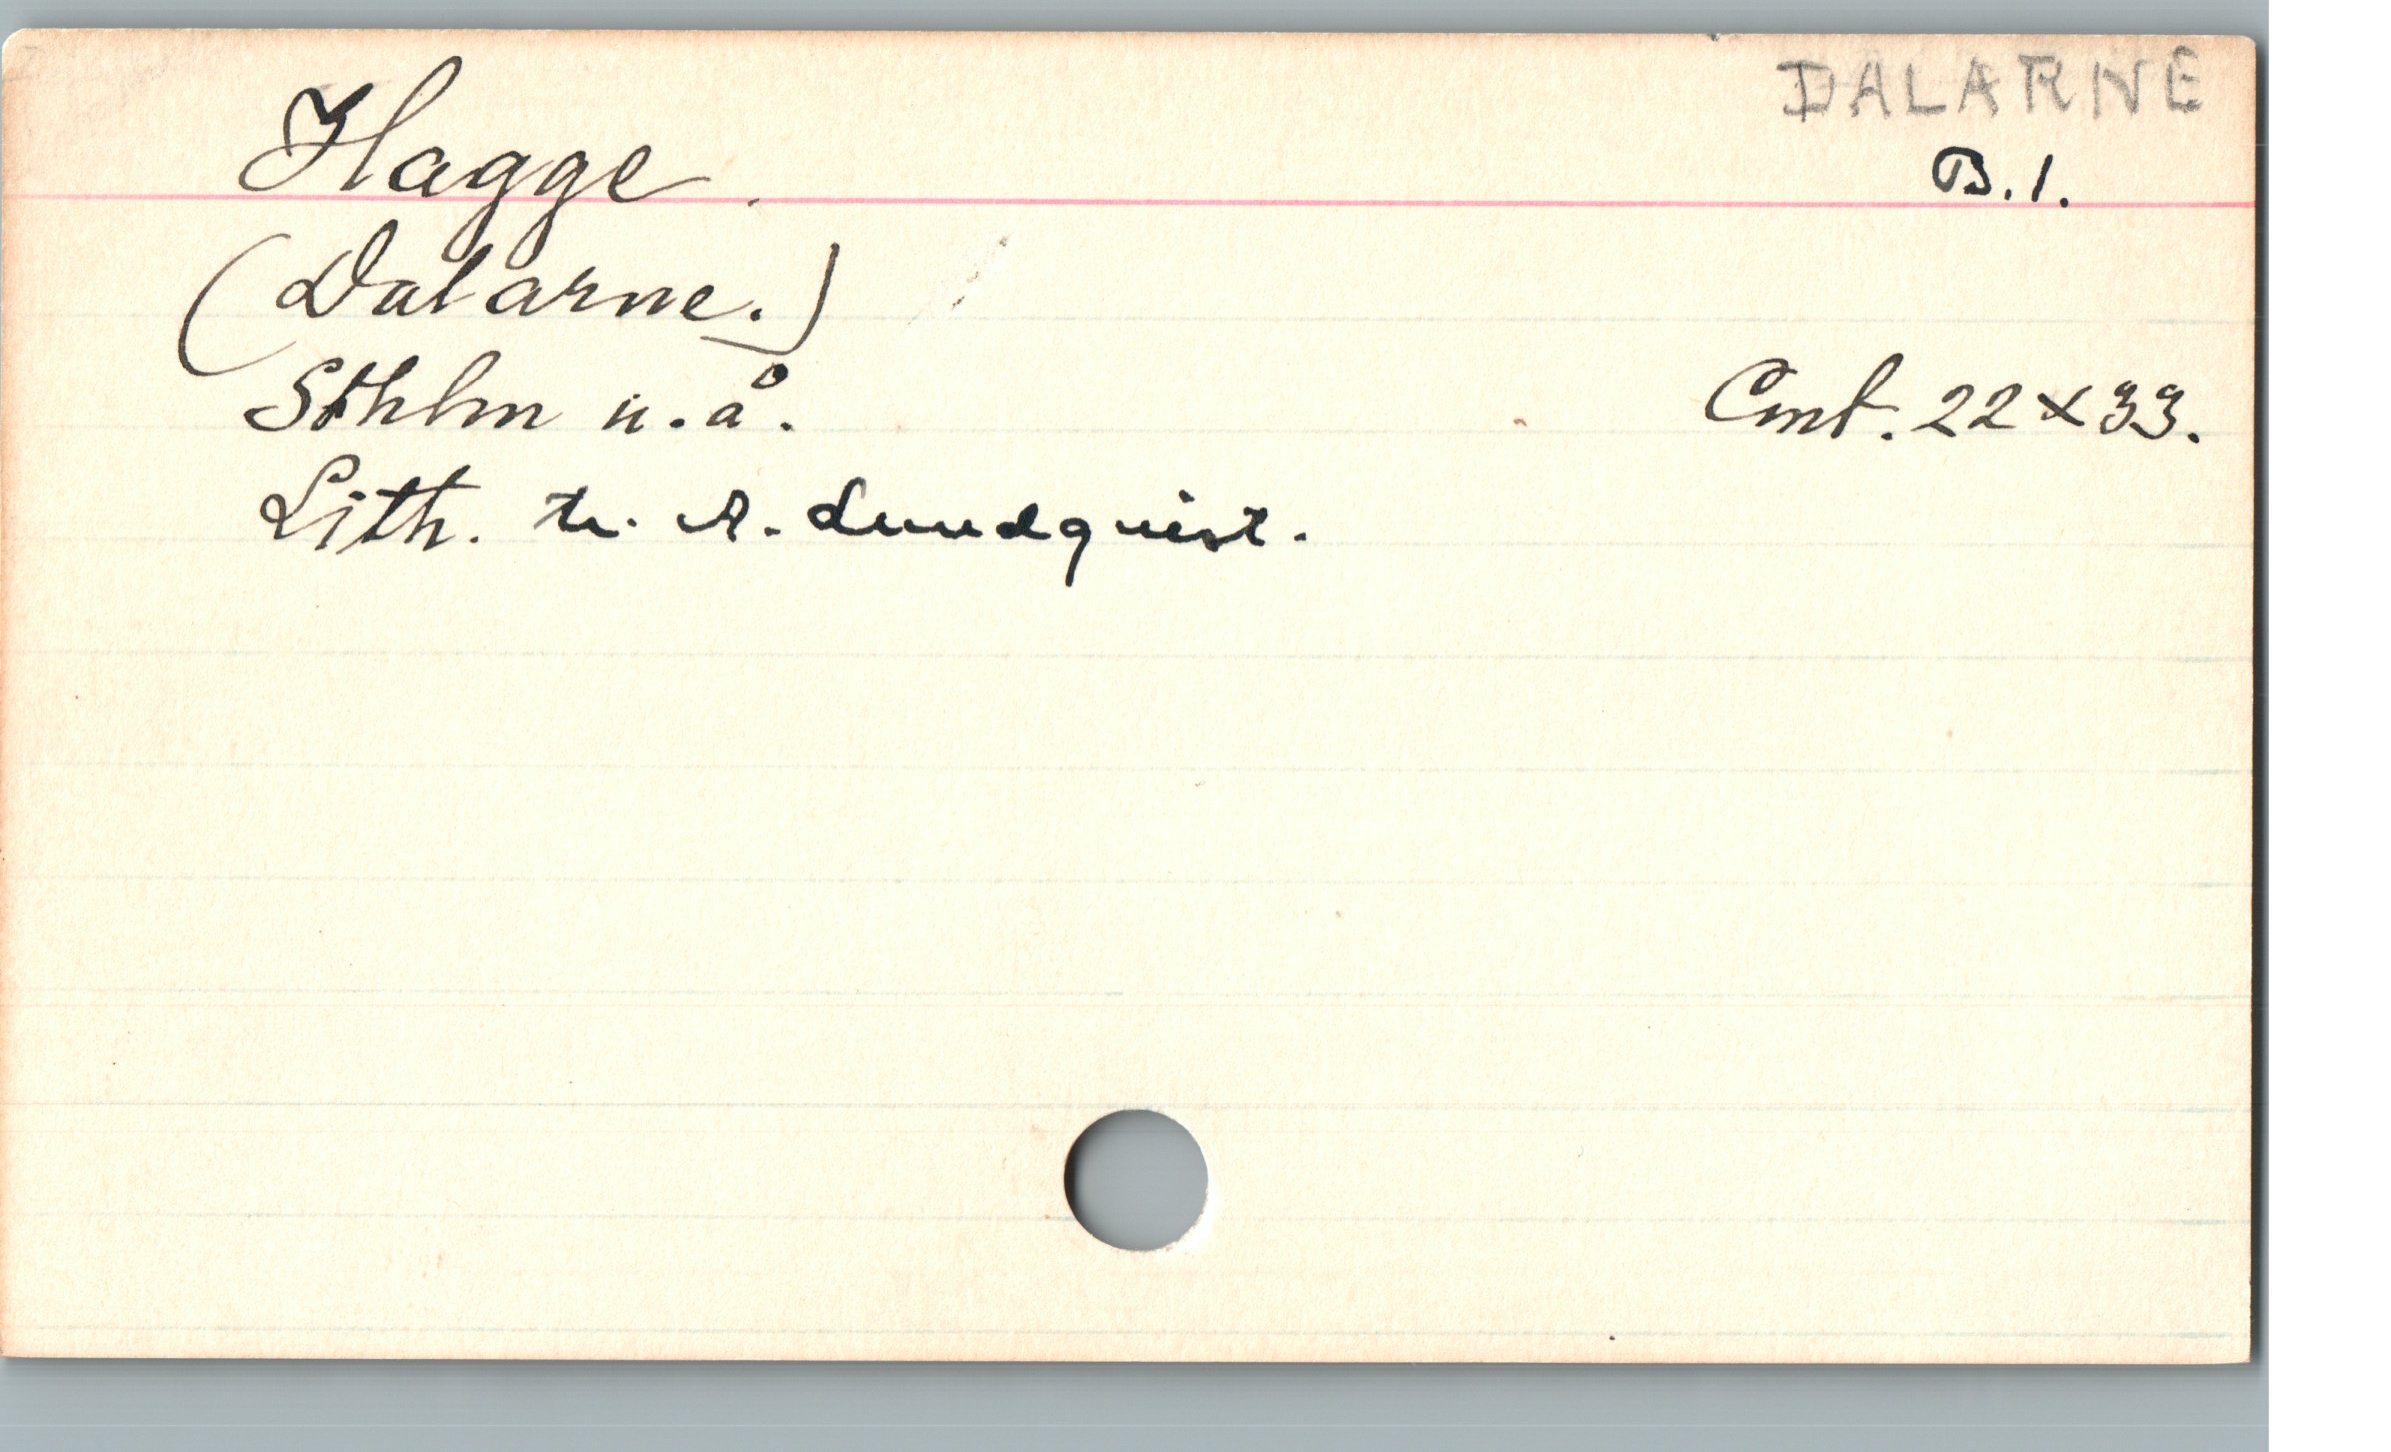 DALARNE
Hagge.
B.1.
(Dalarne.)
Sthlm u.å.
Cmt. 22 x 33.
Lith. tr. A. Lundquist.